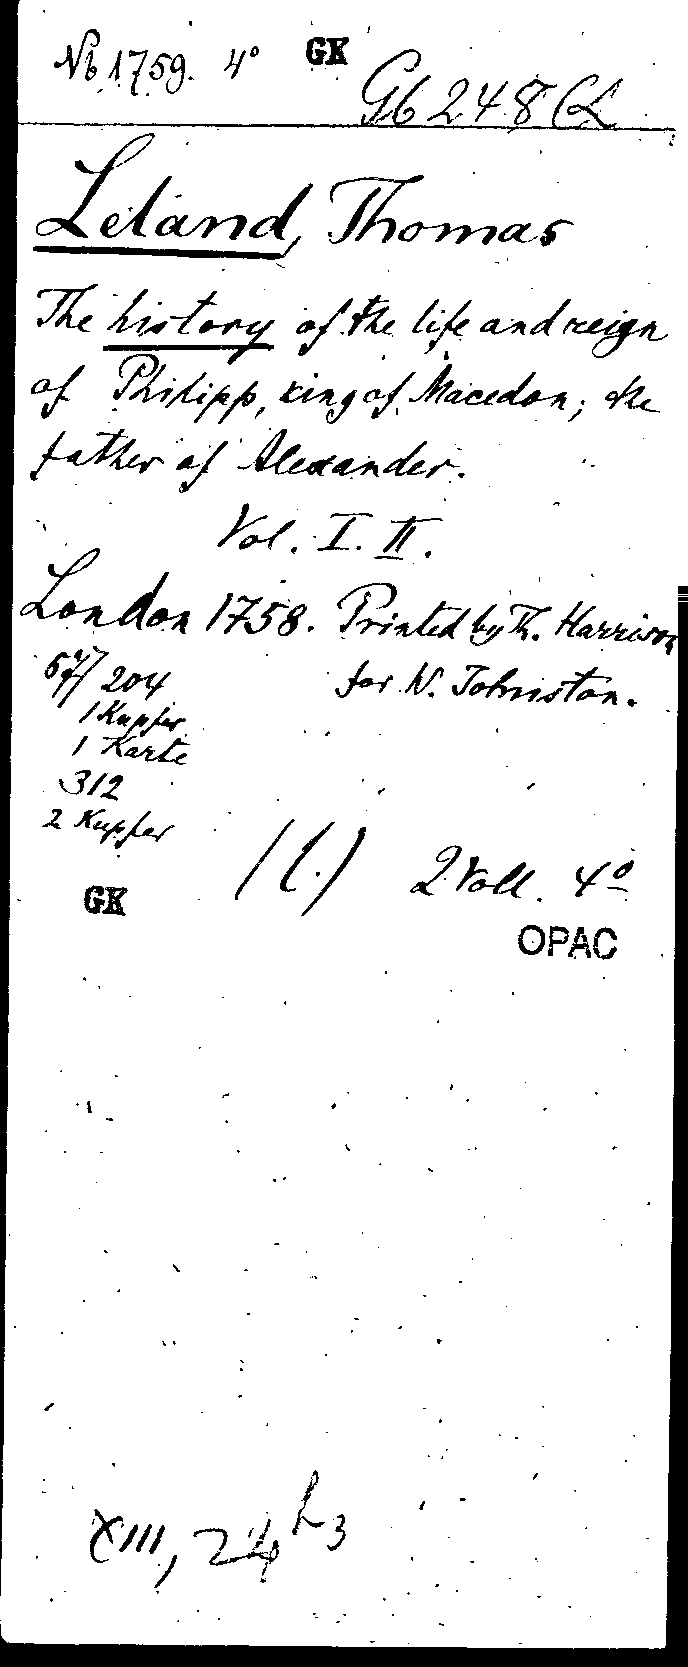 Nb 1759. 4° GK
Gb 248 (L
Leland, Thomas
The history of the life and reign
of Philipp, king of Macedon; the
father of Alexander.
Vol. I. II.
London 1758. Printed by Th. Harrison
for W. Johnston.
204
1 Kupfer
1 Karte
312
2 Kupfer
2 Voll. 4°
GK
OPAC
XIII, 24 h 3